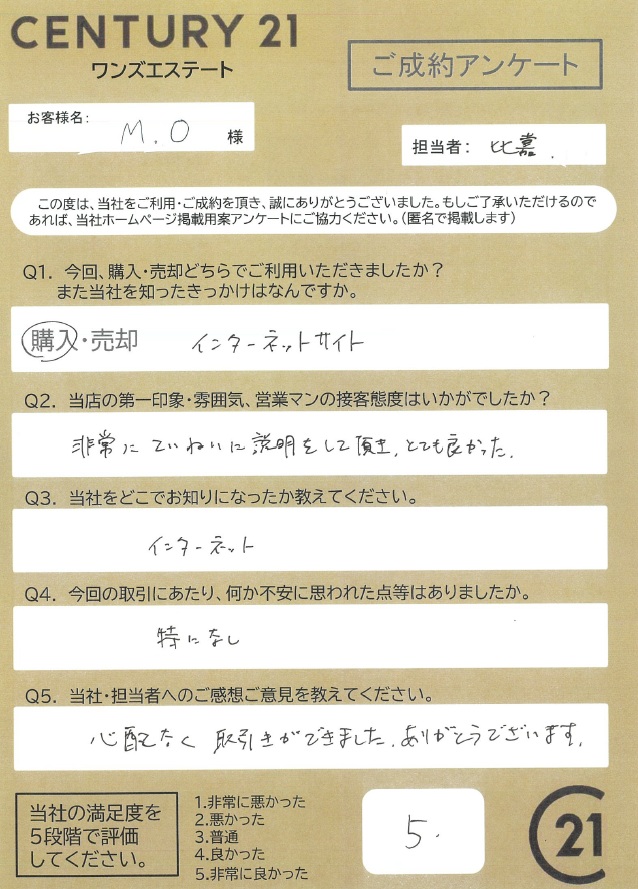 CENTURY 21
ワンズエステート
ご成約アンケート
お客様名:
M.O 様
担当者: 比嘉.
この度は、当社をご利用・ご成約を頂き、誠にありがとうございました。もしご了承いただけるので
あれば、当社ホームページ掲載用案アンケートにご協力ください。(匿名で掲載します)
Q1. 今回、購入・売却どちらでご利用いただきましたか?
また当社を知ったきっかけはなんですか。
購入・売却 インターネットサイト
Q2. 当店の第一印象・雰囲気、営業マンの接客態度はいかがでしたか?
非常にていねいに説明をして頂き、とても良かった。
Q3. 当社をどこでお知りになったか教えてください。
インターネット
Q4. 今回の取引にあたり、何か不安に思われた点等はありましたか。
特になし
Q5. 当社・担当者へのご感想ご意見を教えてください。
心配なく取引きができました。ありがとうございます。
当社の満足度を
5段階で評価
してください。
1.非常に悪かった
2.悪かった
3.普通
4.良かった
5.非常に良かった
5.
C21